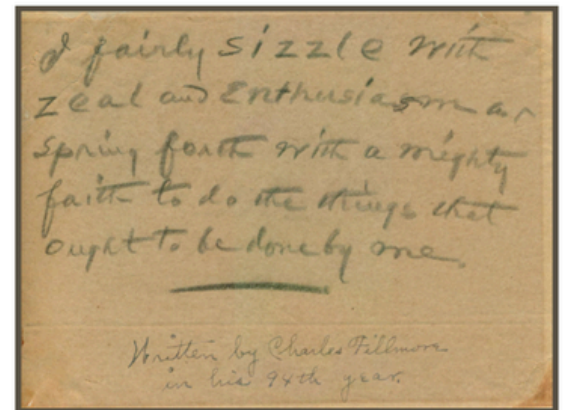 I fairly sizzle with
zeal and Enthusiasm as I
spring forth with a mighty
faith to do the things that
ought to be done by me.
Written by Charles Fillmore
in his 94th year.